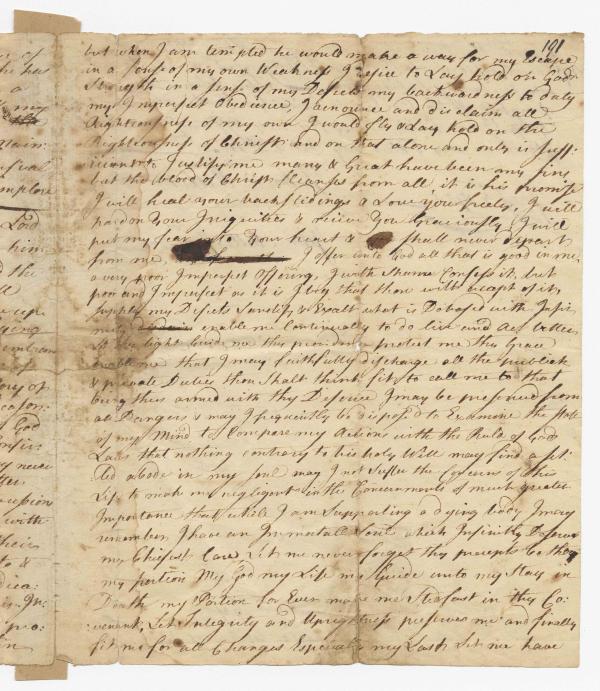 191
but when I am tempted he would make a way for my Escape
in a sense of my own Weakness I desire to Lay hold on Gods
Strength in a sense of my Defects my backwardness to duty
my Imperfect Obedience, I denounce and disclaim all
Righteousness of my own I would fly & Lay hold on the
Righteousness of Christ and on that alone and only is suff-
icient to Justify me many & Great have been my sins
but the blood of Christ Cleanses from all, it is his promise
I will heal your backslidings & Love you freely, I will
pardon Your Iniquities & receive You Graciously I will
put my fear into Your heart & shall never depart
from me, I offer unto God all that is good in me
a very poor Imperfect Offering, I with Shame Confess it, but
poor and Imperfect as it is I beg that thou wilt accept of it,
my Defects Sanctify & Exalt what is Debased with Infir
enable me Continually to do live and act
light Guide me thy providence protect me thy Grace
enable me that I may faithfully discharge all the publick
& private Duties thou Shalt think fit to call me to that
being thus armed with thy Defence I may be preserved from
all Dangers & may I frequently be disposed to Examine the State
of my Mind to Compare my Actions with the Rule of Gods
Laws that nothing contrary to his holy Will may find a set
led abode in my Soul may I not Suffer the Concerns of this
Life to make me negligent in the Concernments of much greater
Importance that while I am Supporting a dying body I may
remember I have an Immortall Soul which Infinitly Deserves
my Chiefest Care, Let me never forget thy precepts be thou
my portion My God my Life my Guide unto my Stay in
Death my Portion for Ever make me Stedfast in this Co-
venant, Let Integrity and Uprightness preserve me and finally
fit me for all Changes Especially my Last Let me have